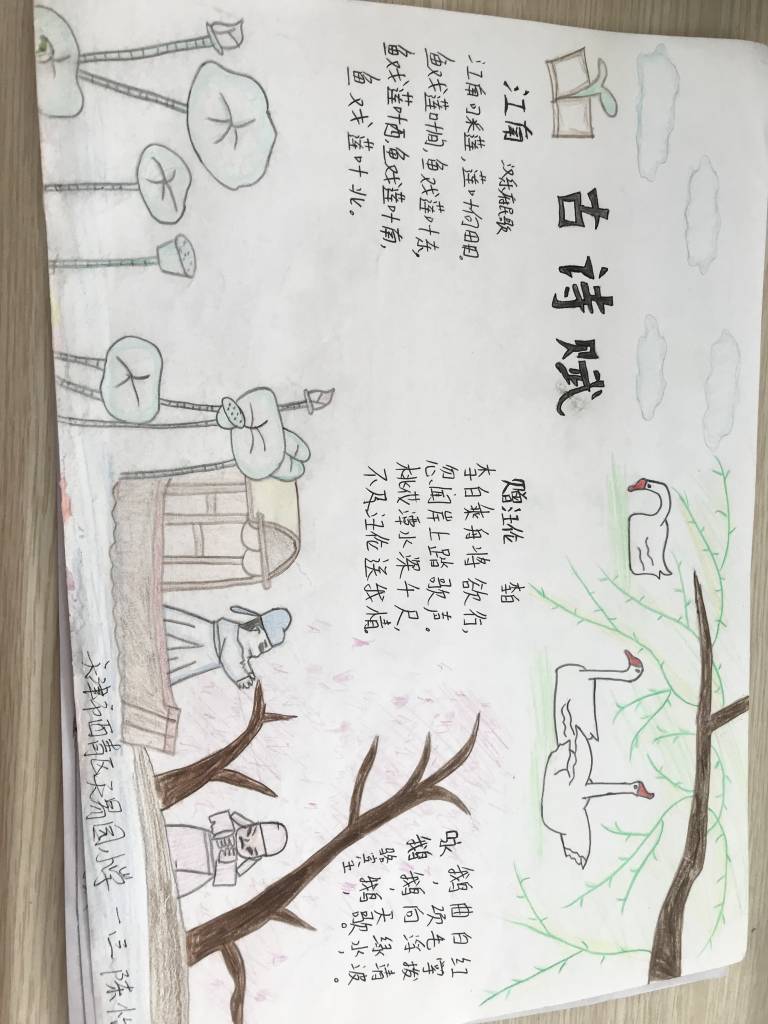 古诗赋
江南 汉乐府民歌
江南可采莲，莲叶何田田。
鱼戏莲叶间，鱼戏莲叶东，
鱼戏莲叶西，鱼戏莲叶南，
鱼戏莲叶北。
赠汪伦 李白
李白乘舟将欲行，
忽闻岸上踏歌声。
桃花潭水深千尺，
不及汪伦送我情。
咏鹅 骆宾王
鹅，鹅，鹅，
曲项向天歌，
白毛浮绿水，
红掌拨清波。
天津市西青区天易园小学 一三 陈怡